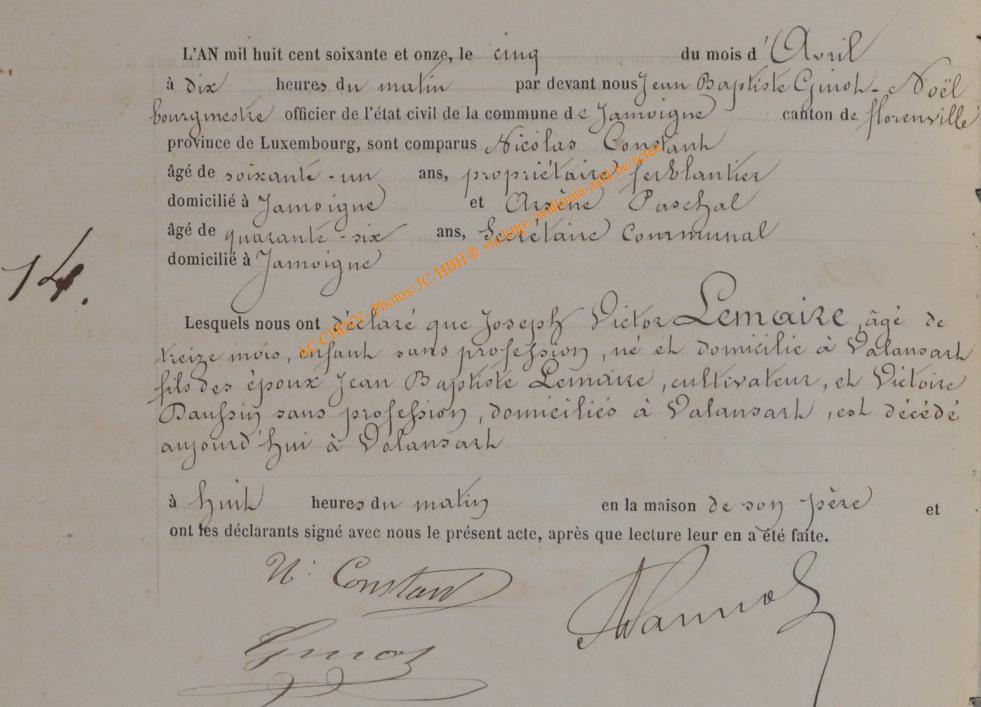 L'AN mil huit cent soixante et onze, le cinq du mois d'Avril
à dix heures du matin par devant nous Jean Baptiste Ginot-Noël
bourgmestre officier de l'état civil de la commune de Jamoigne canton de florenville
province de Luxembourg, sont comparus Nicolas Constant
âgé de soixante-un ans, propriétaire ferblantier
domicilié à Jamoigne et Arsène Paschal
âgé de quarante-six ans, Secrétaire Communal
domicilié à Jamoigne
14.
Lesquels nous ont déclaré que Joseph Victor Lemaire, âgé de
treize mois, enfant sans profession, né et domicilié à Valansart
fils des époux Jean Baptiste Lemaire, cultivateur, et Victoire
Daussin sans profession, domiciliés à Valansart, est décédé
aujourd'hui à Valansart
à huit heures du matin en la maison de son père et
ont les déclarants signé avec nous le présent acte, après que lecture leur en a été faite.
N. Constant
Ginot
Photos: JC/HBH ®